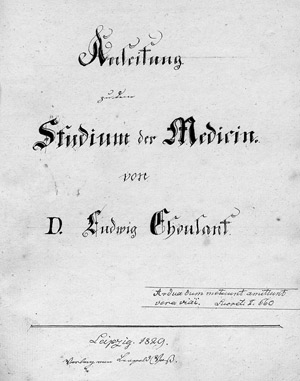 Anleitung
zu dem
Studium der Medicin.
von
D. Ludwig Choulant.
Ardua dum metuunt amittunt
vera viai. Lucret. I. 660
Leipzig. 1829.
Verlag von Leopold Voß.